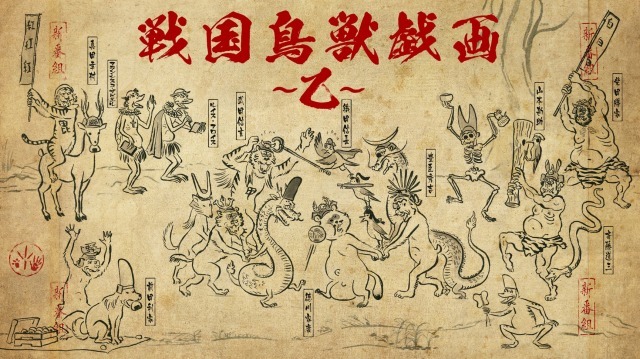 戦国鳥獣戯画
～乙～
新番組
新番組
真田幸村
フランシスコ・ザビエル
ルイス・フロイス
武田信玄
織田信長
豊臣秀吉
山本勘助
柴田勝家
斎藤道三
徳川家康
前田利家
新番組
新番組